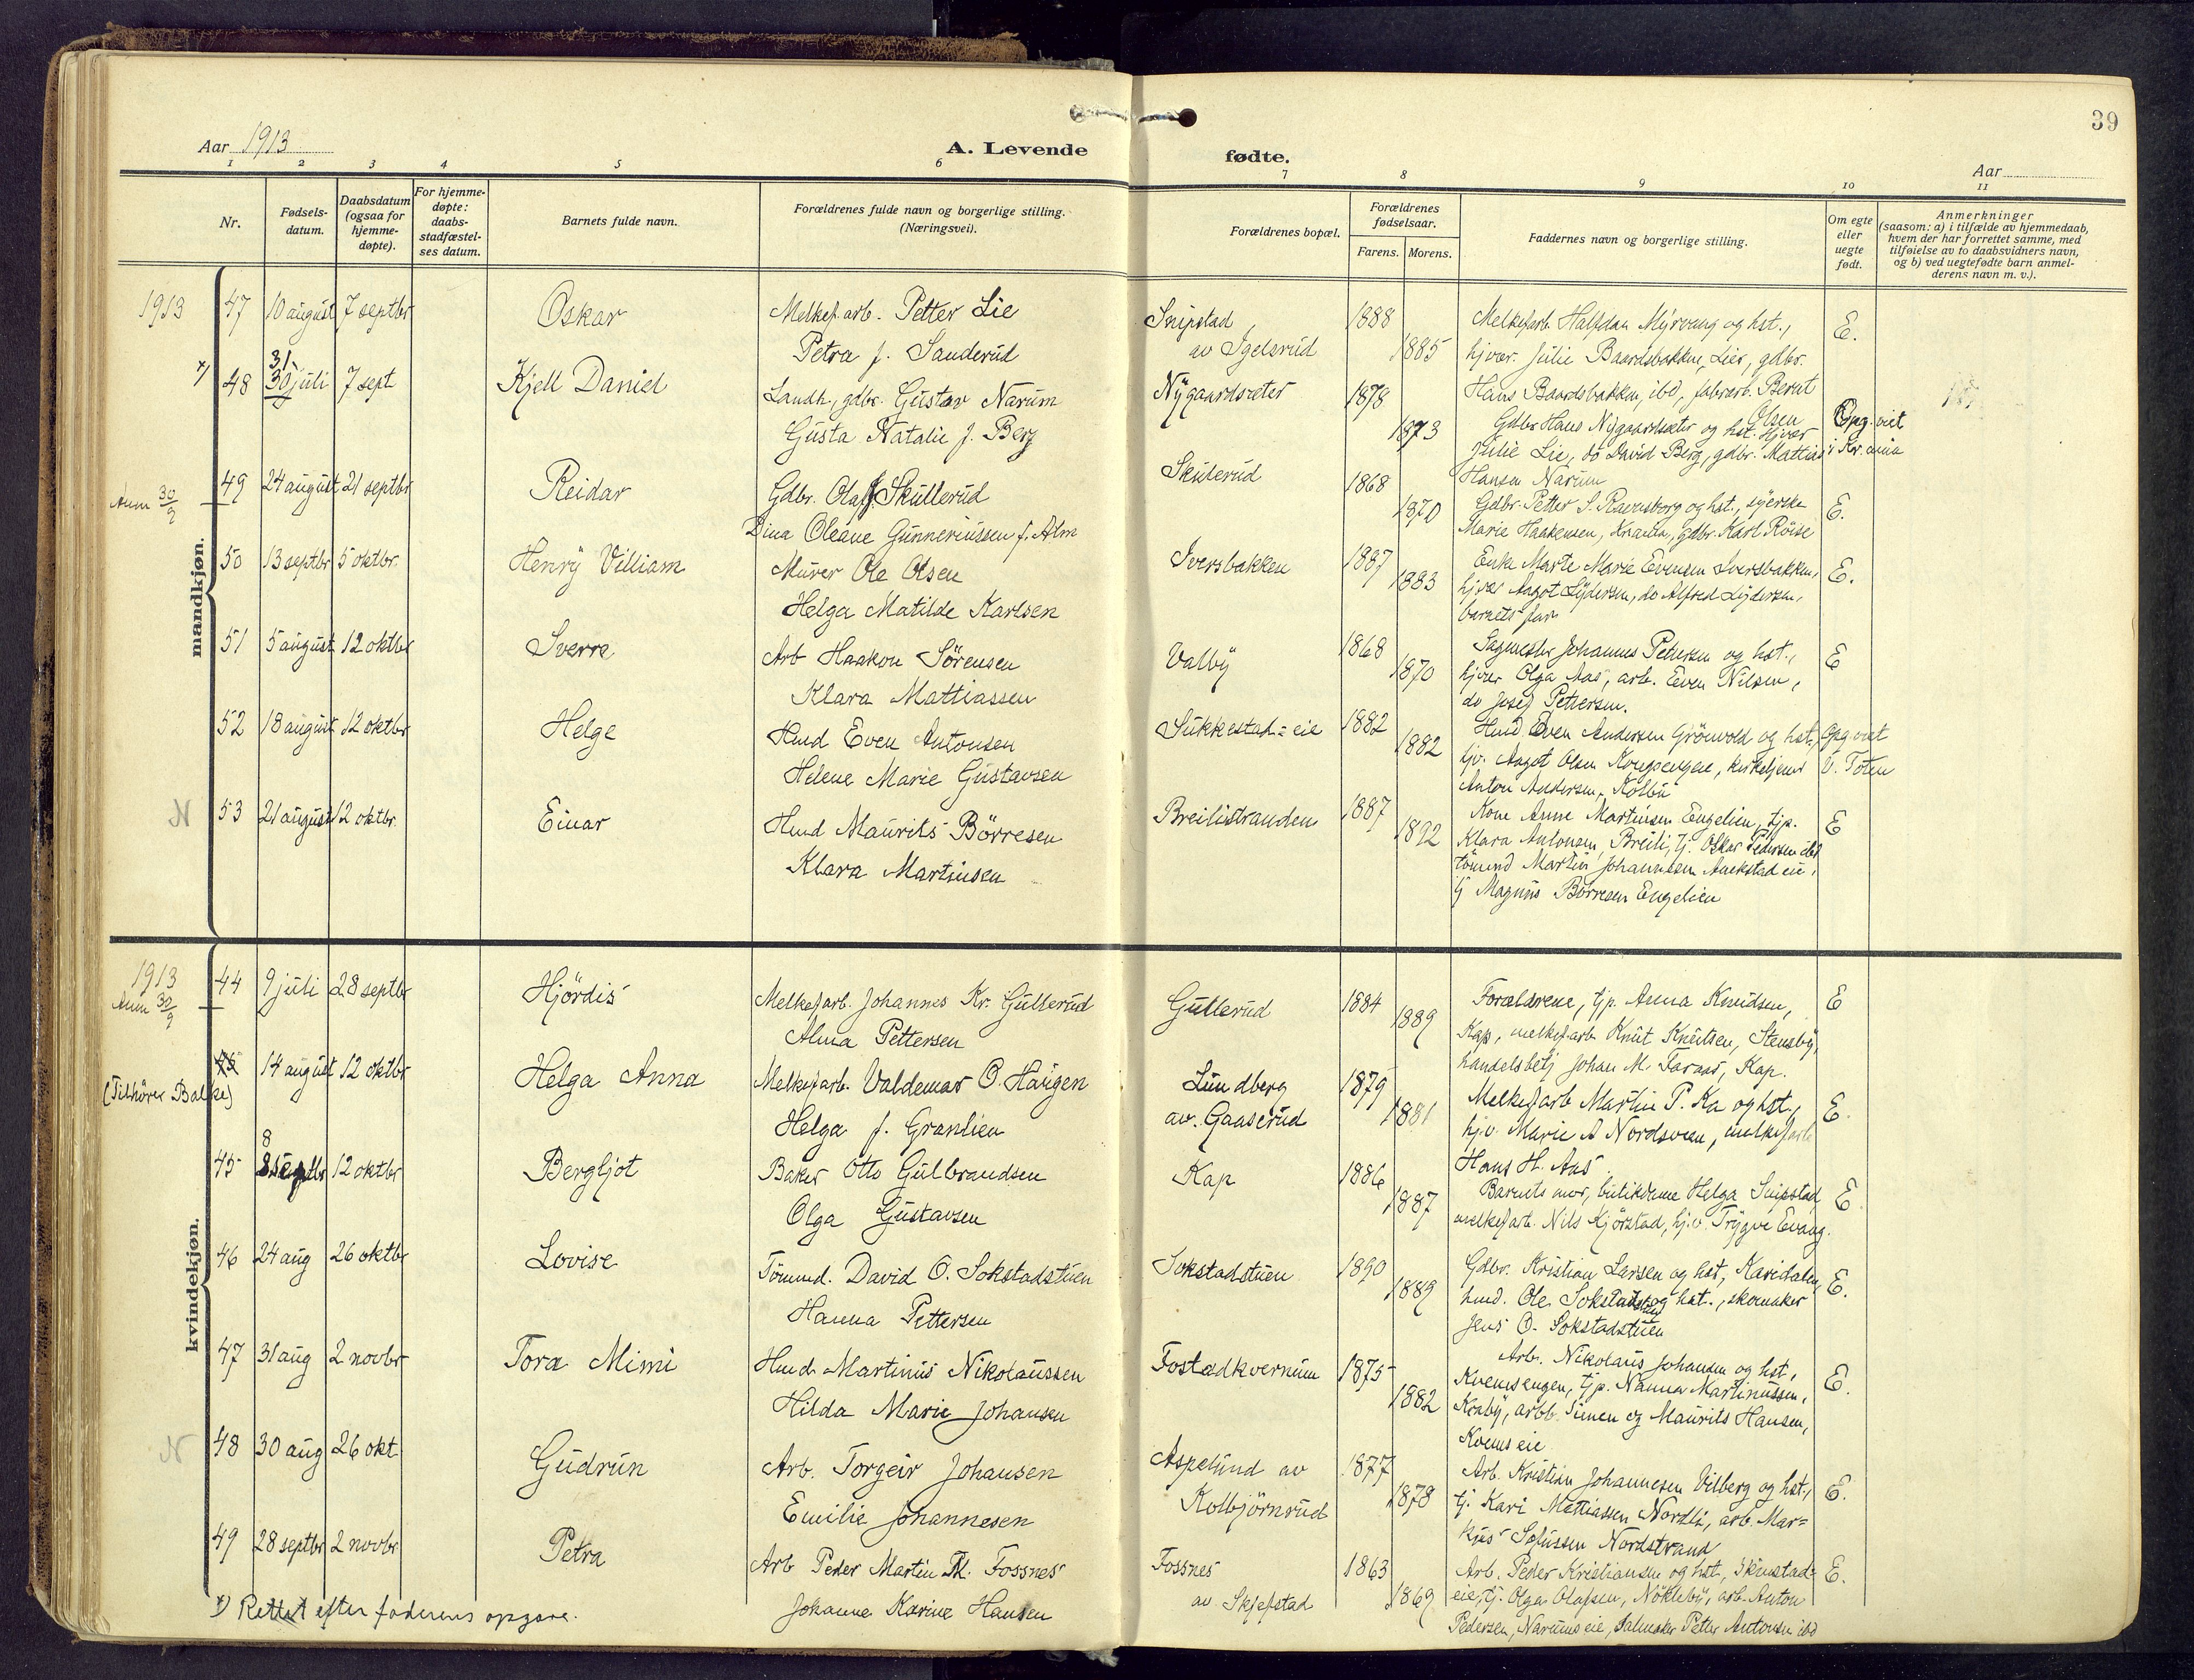 39
Aar 1913
A. Levende
fødte.
Aar
1 2 3 4 5 6 7 8 9 10 11
Nr.
Fødsels-
datum.
Daabsdatum
(ogsaa for
hjemme-
døpte).
For hjemme-
døpte:
daabs-
stadfæstel-
ses datum.
Barnets fulde navn.
Forældrenes fulde navn og borgerlige stilling.
(Næringsvei).
Forældrenes bopæl.
Forældrenes
fødselsaar.
Farens. Morens.
Faddernes navn og borgerlige stilling.
Om egte
eller
uegte
født.
Anmerkninger
(saasom: a) i tilfælde av hjemmedaab,
hvem der har forrettet samme, med
tilføielse av to daabsvidners navn,
og b) ved uegtefødte barn anmel-
derens navn m. v.).
mandkjøn.
1913 47 10 august 7 septbr Oskar
Melkef. arb. Petter Lie
Petra f. Sanderud
Snipstad
av Igelsrud
1888
1885
Melkefarb. Halfdan Myrvang og hst.,
hjvær. Julie Baardsbakken, Lier, gdbr.
Hans Baardsbakken, ibd, fabrarb. Bernt
Olsen
E.
x) 48 31 30 juli 7 sept Kjell Daniel
Landh., gdbr. Gustav Narum
Gusta Natalie f. Berg
Nygaardsæter
1878
1873
Gdbr Hans Nygaardsæter og hst. Hjvær
Julie Lie, do David Berg, gdbr. Mattias
Hansen Narum
Opg. viet
i Kr.ania
Anm 30/9 49 24 august 21 septbr Reidar
Gdbr. Olaf J. Skullerud
Dina Oleane Gunneriussen f. Alm
Skulerud
1868
1870
Gdbr. Petter S. Ravnsborg og hst., syerske
Marie Haakensen, Krania, gdbr. Karl Röise
E.
50 13 septbr 5 oktbr. Henry Villiam
Murer Ole Olsen
Helga Matilde Karlsen
Iversbakken
1887
1883
Enke Marte Marie Evensen Iversbakken,
hjvær Aagot Lydersen, do Alfred Lydersen,
barnets far
E.
51 5 august 12 oktbr Sverre
Arb Haakon Sörensen
Klara Mattiassen
Valby
1868
1870
Sagmester Johannes Petersen og hst.,
hjvær Olga Aas, arb. Even Nilsen,
do Josef Pettersen.
E
52 18 august 12 oktbr Helge
Hmd Even Antonsen
Helene Marie Gustavsen
Sukkestad=eie
1882
1882
Hmd Even Andersen Grönvold og hst.,
hjv. Aagot Olsen Kongsengen, kirketjener
Anton Andersen, Kolbu
Opg. viet
V. Toten
N 53 21 august 12 oktbr. Einar
Hmd Maurits Börresen
Klara Martinsen
Breilistranden
1887
1892
Kone Anne Martinsen Engelien, tjp.
Klara Antonsen, Breili, tj. Oskar Pedersen ibd
tömmd Martin Johannesen Aukstad eie,
tj Magnus Börresen Engelien
E
kvindekjøn.
1913
Anm 30/9 44 9 juli 28 septbr Hjördis
Melkefarb. Johannes Kr. Gullerud
Alma Pettersen
Gullerud
1884
1889
Forældrene, tjp. Anna Knudsen,
Kap, melkefarb Knut Knutsen, Stensby,
handelsbetj Johan M. Faraas, Kap.
E
45 14 august 12 oktbr Helga Anna
(Tilhörer Balke)
Melkefarb. Valdemar O. Haugen
Helga f. Granlien
Lundberg
av. Gaaserud
1879
1881
Melkefarb Martin P. Ka og hst.,
hj.v. Marie A Nordsveen, melkefarb
Hans H. Aas
E.
45 8 8 septbr 12 oktbr Bergljot
Baker Otto Gulbrandsen
Olga Gustavsen
Kap
1886
1887
Barnets mor, butikdame Helga Snipstad
melkefarb. Nils Kjörstad, hj.v. Trygve Evang.
E
46 24 aug 26 oktbr Lovise
Tömmd. David O. Sokstadstuen
Hanna Pettersen
Sokstadstuen
1890
1889
Gdbr. Kristian Larsen og hst, Karidalen,
hmd. Ole Sokstadstuen og hst., skomaker
Jens O. Sokstadstuen
E.
47 31 aug 2 novbr Tora Mimi
Hmd. Martinus Nikolaussen
Hilda Marie Johansen
Fostadkvernum
1875
1882
Arb. Nikolaus Johansen og hst,
Kvemsengen, tjp. Nanna Martinussen,
Kraby, arbb. Simen og Maurits Hansen,
Kvems eie
E.
N 48 30 aug 26 okt Gudrun
Arb. Torgeir Johansen
Emilie Johannesen
Aspelund av
Kolbjörnrud
1877
1878
Arb. Kristian Johannesen Vilberg og hst.,
tj. Kari Mattiassen Nordli, arb. Mar=
kus Sofussen Nordstrand
E.
49 28 septbr 2 novbr Petra
Arb Peder Martin M. Fossnes
Johanne Karine Hansen
Fossnes
av Skjefstad
1863
1869
Arb. Peder Kristiansen og hst, Skrustad=
eie, tj. Olga Olafsen, Nökleby, arb. Anton
Pedersen, Narums eie, salmaker Petter Antonsen ibd
E.
x) Rettet efter faderens opgave.